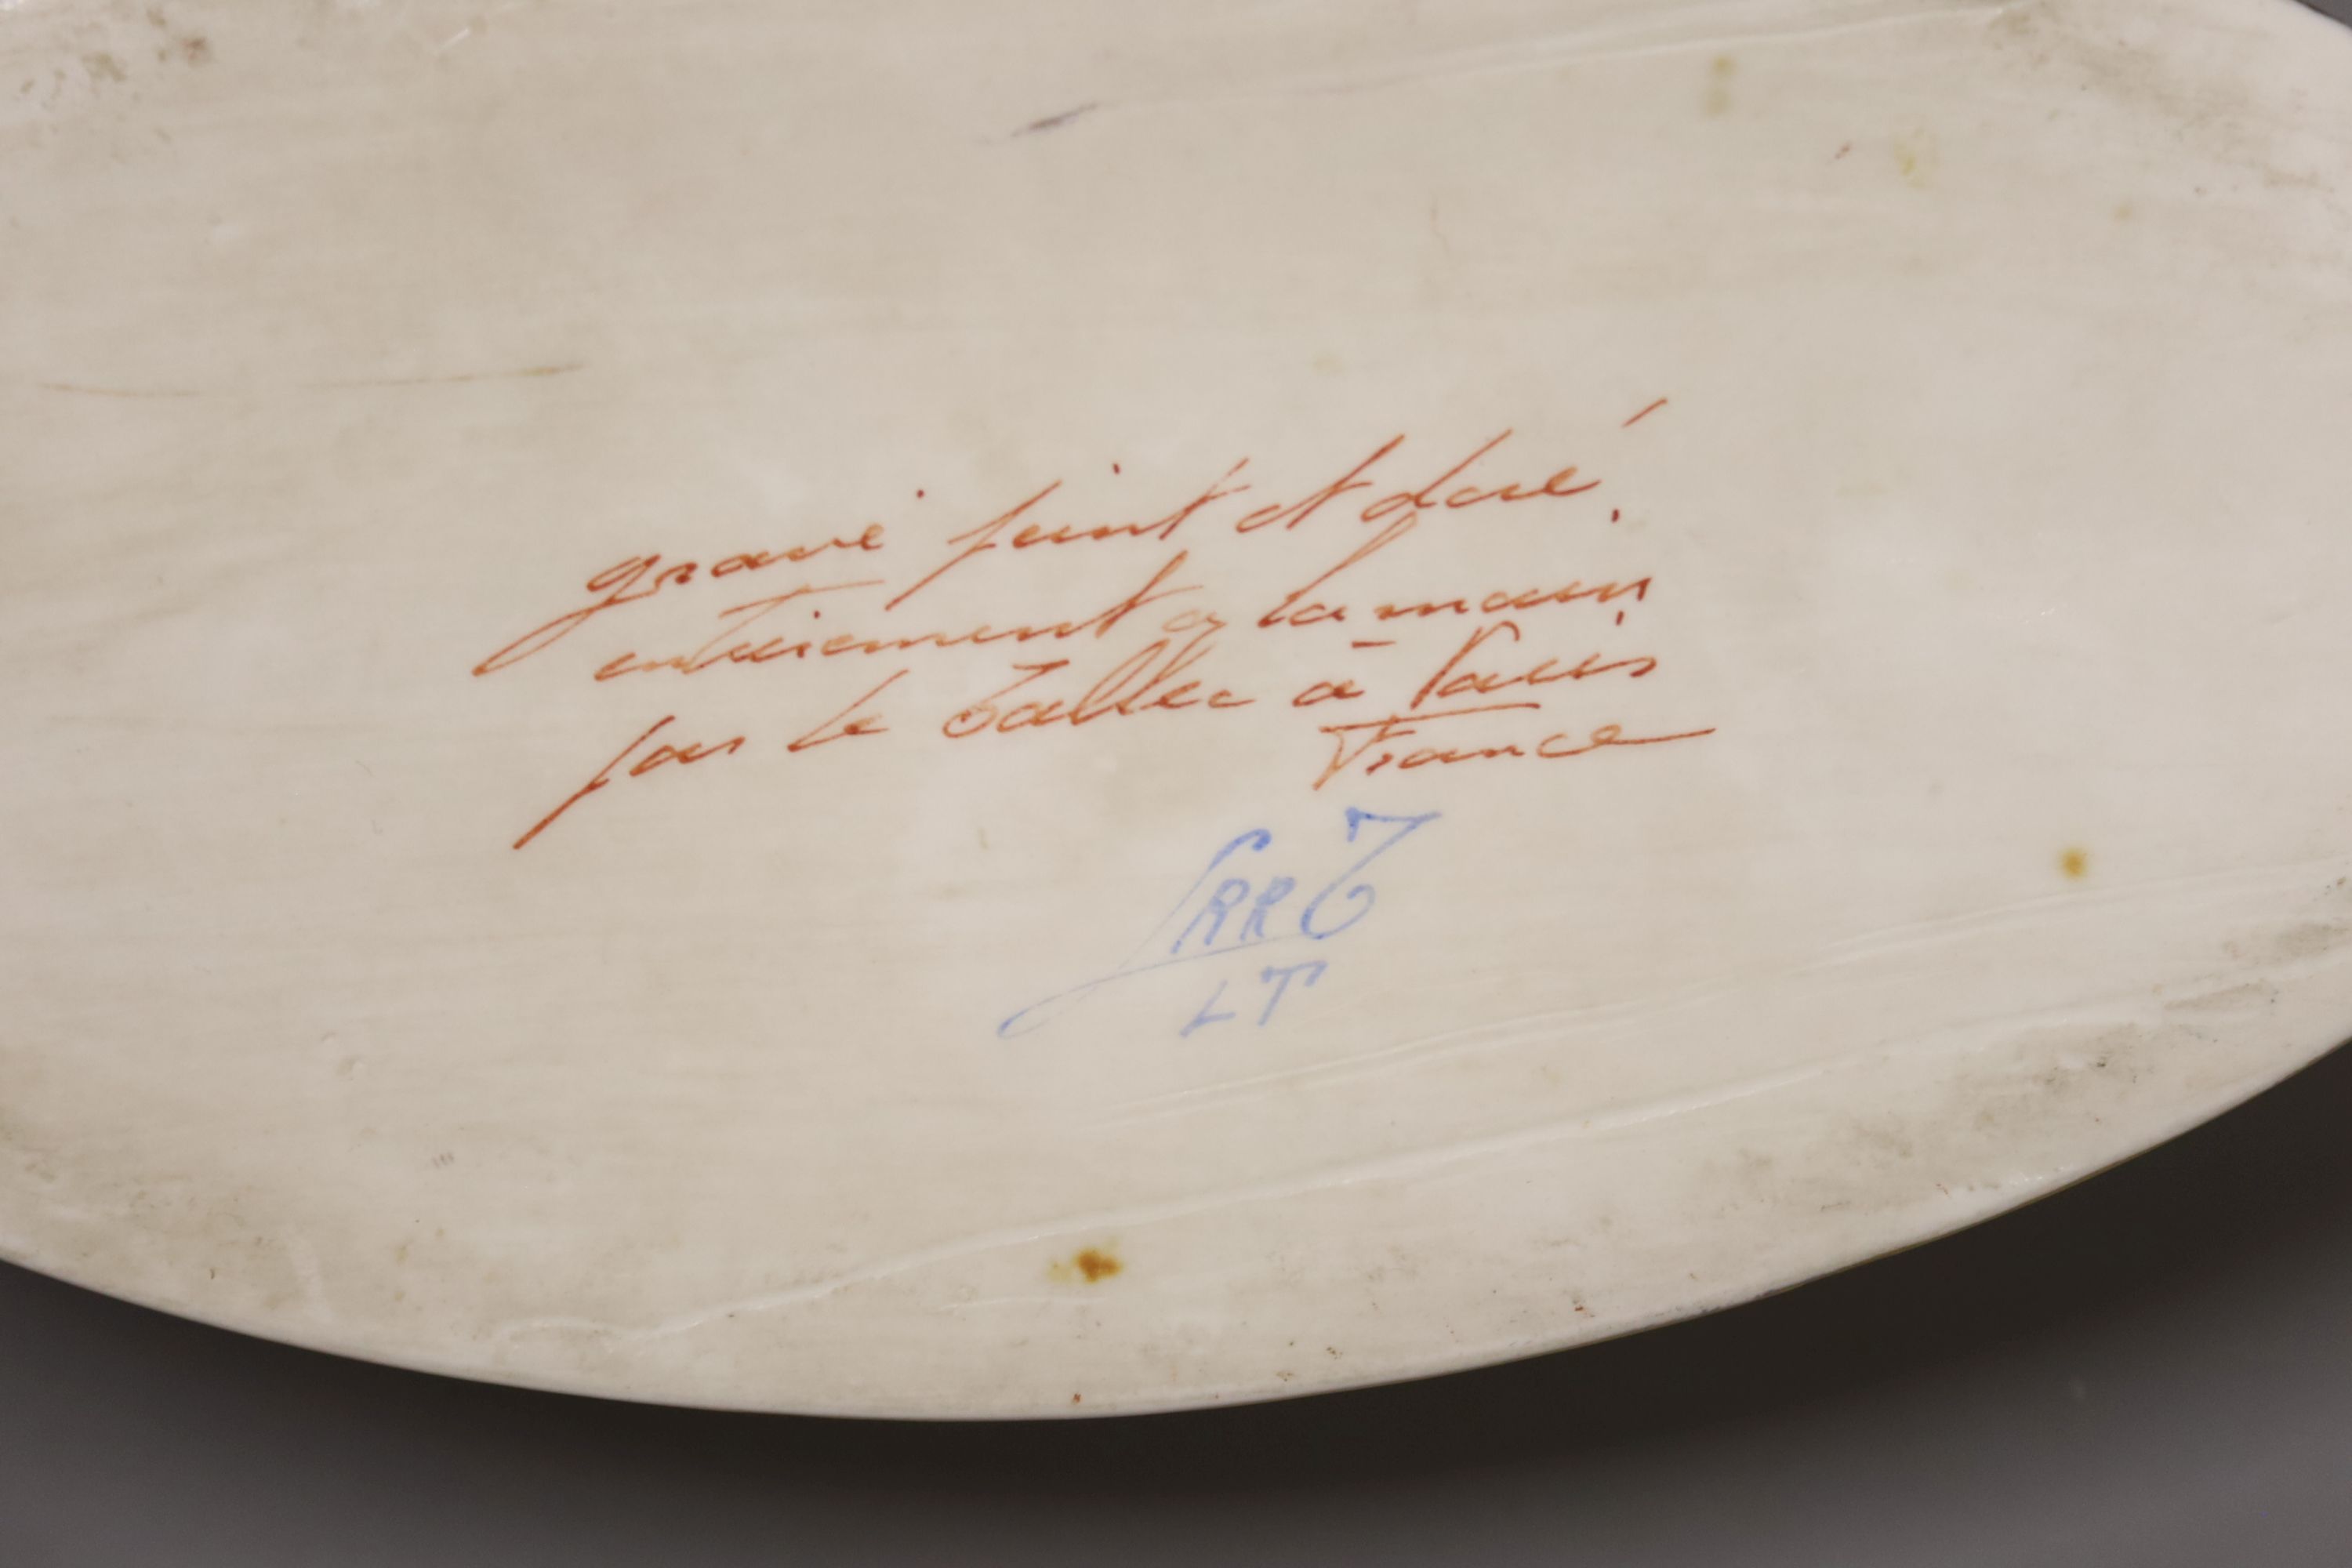 gravé peint et doré
entièrement a la main
par le Tallec à Paris
France
LRRT
LT